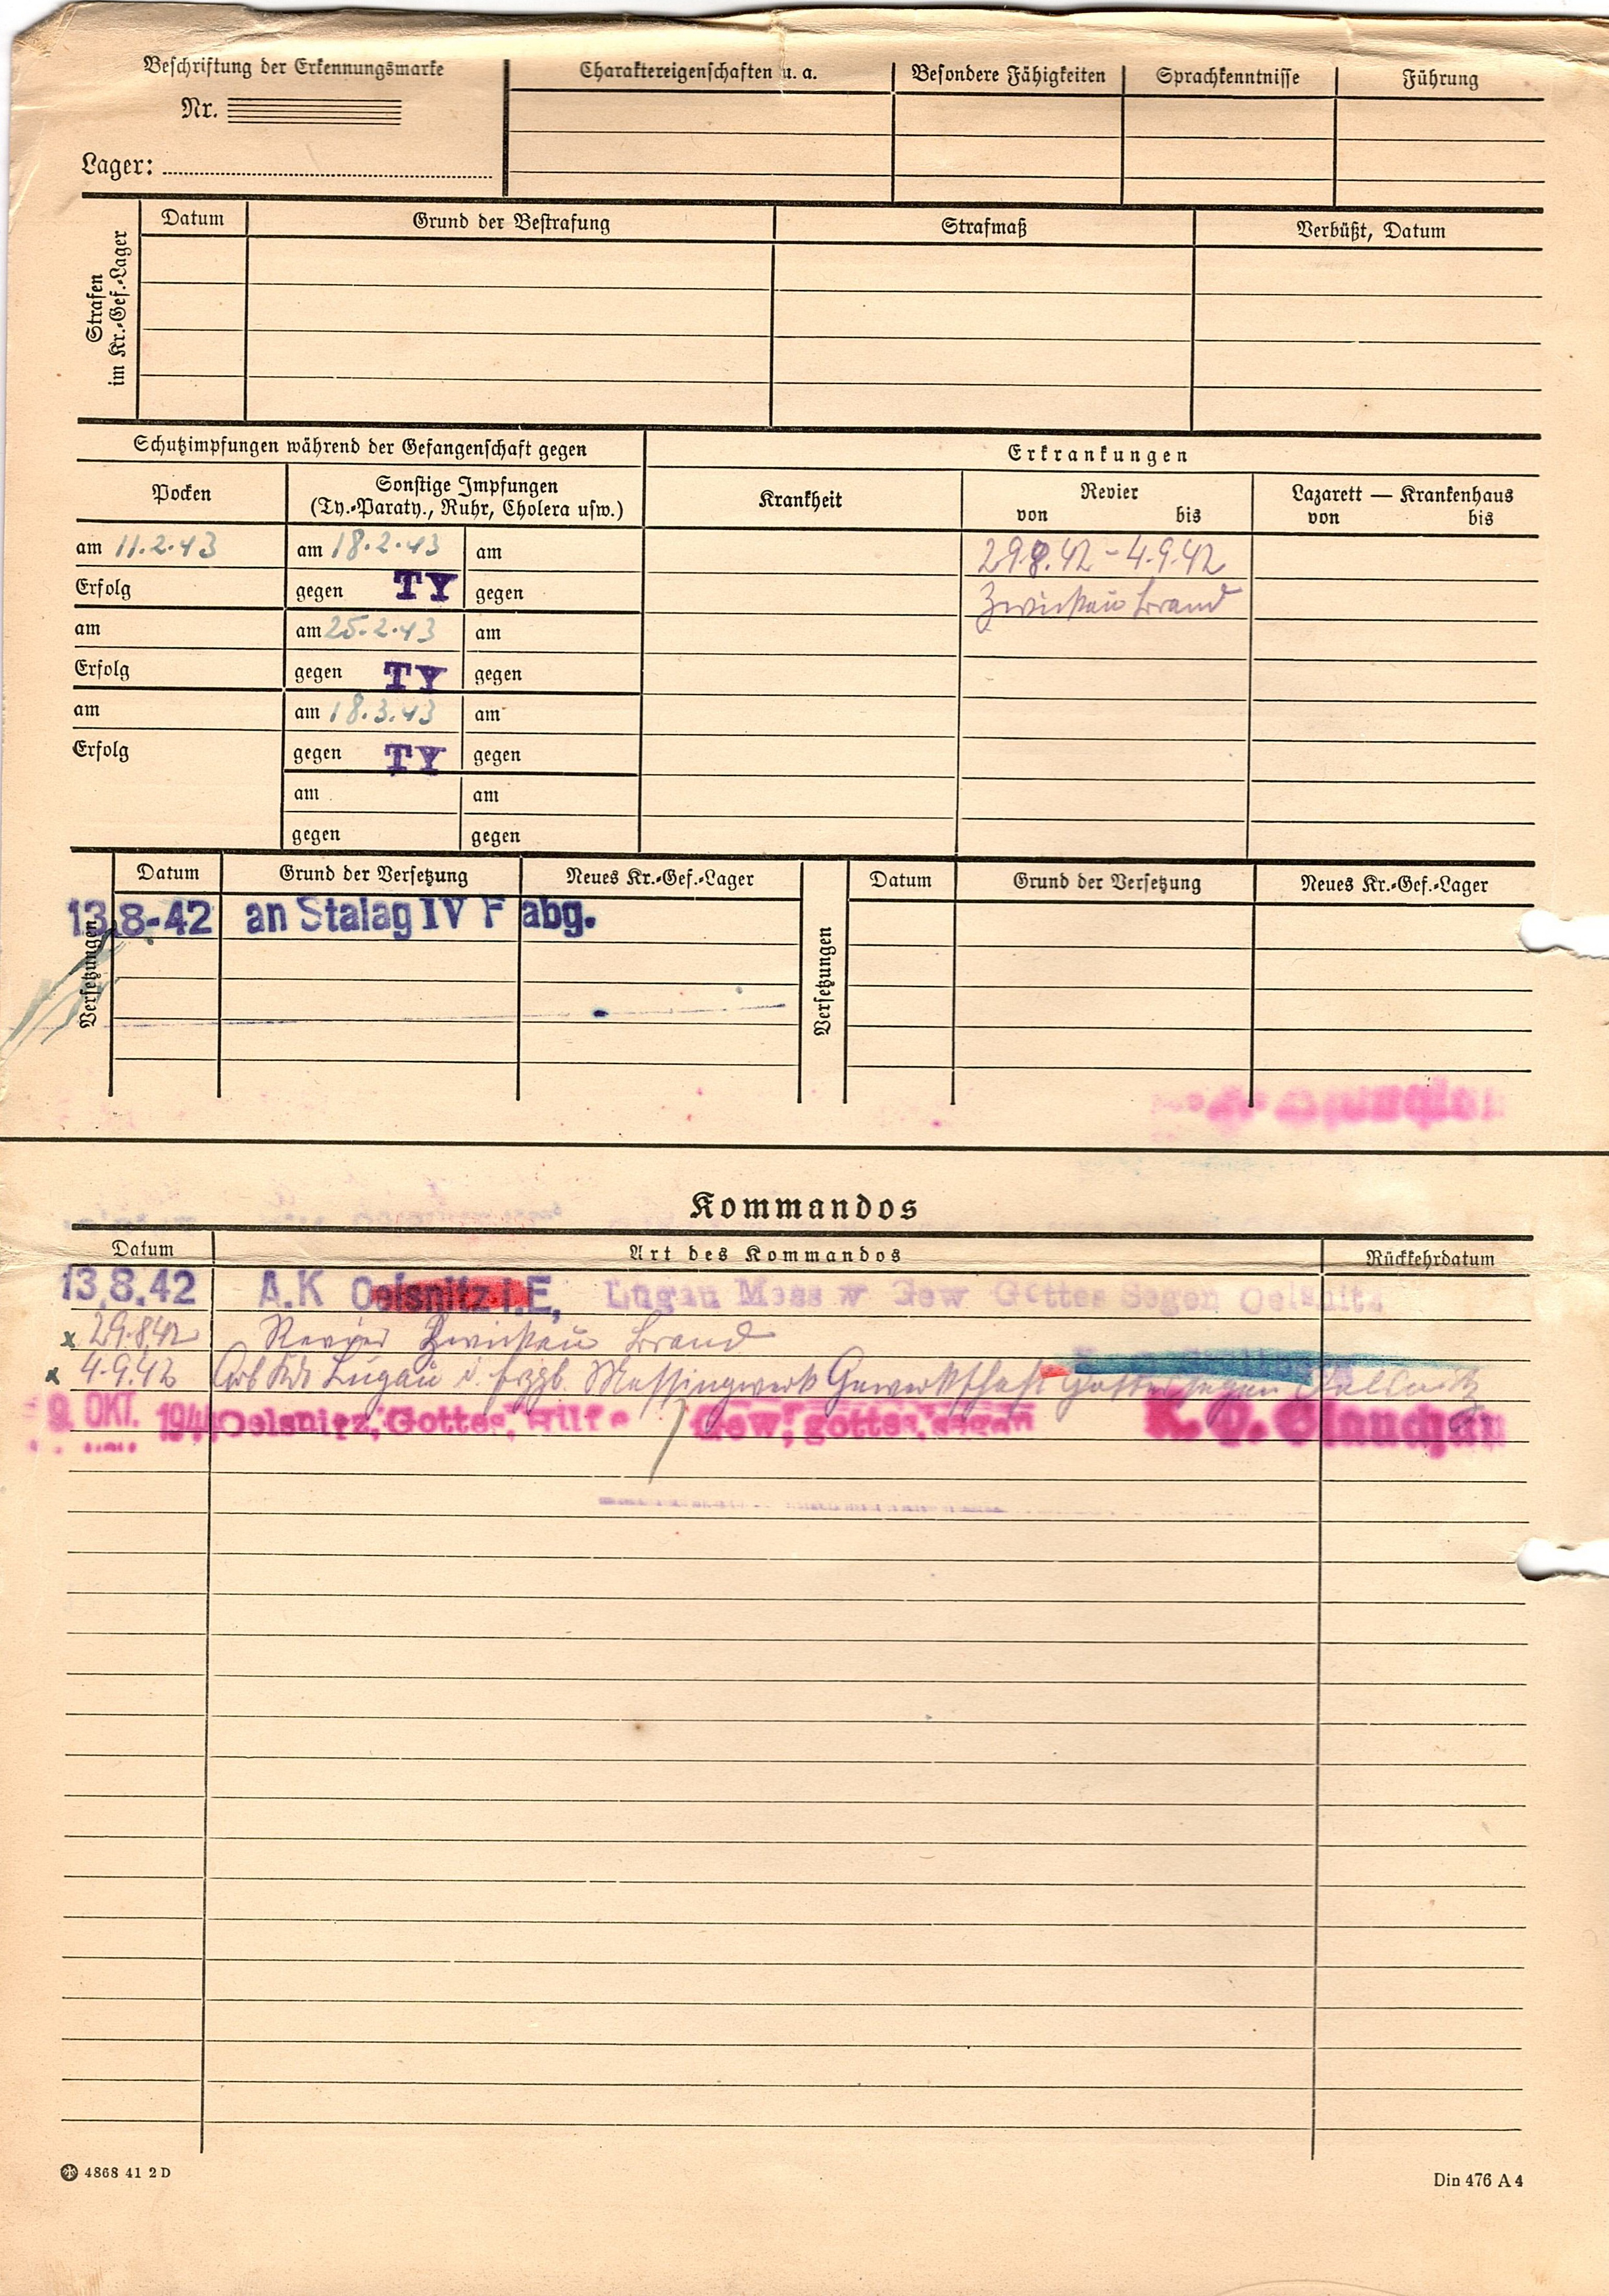 Beschriftung der Erkennungsmarke
Nr.
Lager:
Charaktereigenschaften u. a.
Besondere Fähigkeiten
Sprachkenntnisse
Führung
Strafen
im Kr.-Gef.-Lager
Datum
Grund der Bestrafung
Strafmaß
Verbüßt, Datum
Schutzimpfungen während der Gefangenschaft gegen
Erkrankungen
Pocken
Sonstige Impfungen
(Ty.-Paraty., Ruhr, Cholera usw.)
Krankheit
Revier
von bis
Lazarett — Krankenhaus
von bis
am 11.2.43
am 18.2.43
am
29.8.42 - 4.9.42
Erfolg
gegen TY
gegen
Zwickau Brand
am
am 25.2.43
am
Erfolg
gegen TY
gegen
am
am 18.3.43
am
Erfolg
gegen TY
gegen
am
am
gegen
gegen
Versetzungen
Datum
Grund der Versetzung
Neues Kr.-Gef.-Lager
Versetzungen
Datum
Grund der Versetzung
Neues Kr.-Gef.-Lager
13.8-42 an Stalag IV F abg.
Kommandos
Datum
Art des Kommandos
Rückkehrdatum
13.8.42 A.K Oelsnitz i.E, Lugau Mess w Gew Gottes Segen Oelsnitz
x 29.8.42 Revier Zwickau Brand
x 4.9.42 Arb Kdo Lugau i. Erzgb. Messingwerk Gewerkschaft Gottes Segen Oelsnitz
9. OKT. 194 Oelsnitz, Gottes, Hilfe / Gew, gottes, segen K. O. Glauchau
4868 41 2 D
Din 476 A 4